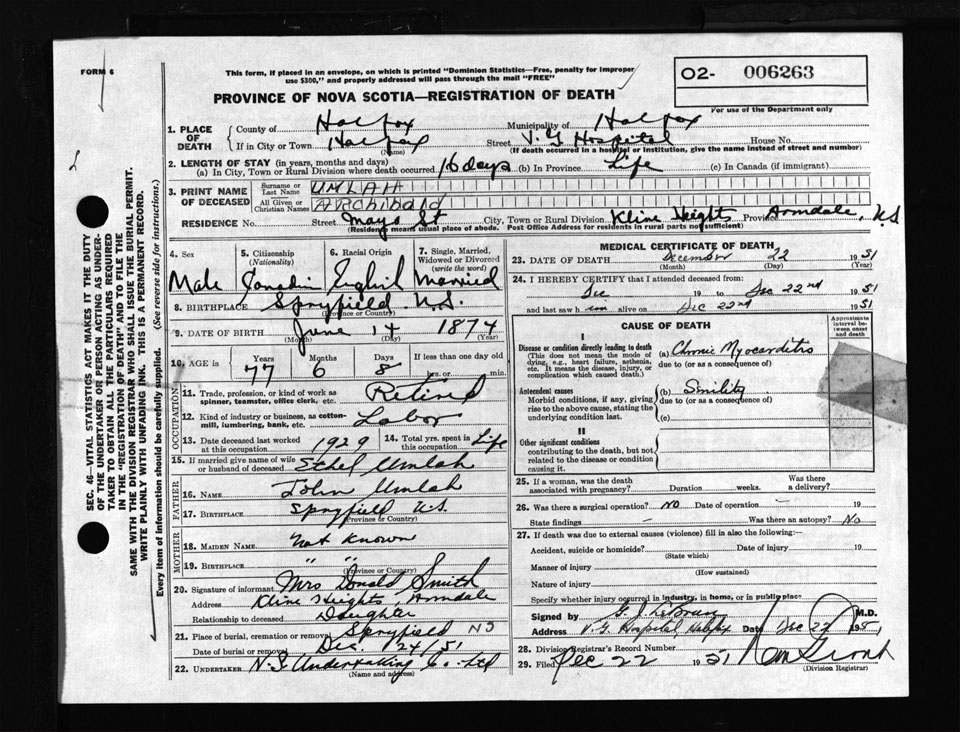 FORM 6
This form, if placed in an envelope, on which is printed "Dominion Statistics—Free, penalty for improper
use $300," and properly addressed will pass through the mail "FREE"
O2- 006263
For use of the Department only
PROVINCE OF NOVA SCOTIA—REGISTRATION OF DEATH
1. PLACE OF DEATH
County of Halifax Municipality of Halifax
If in City or Town Halifax Street V. G Hospital House No.
(Name) (If death occurred in a hospital or institution, give the name instead of street and number)
2. LENGTH OF STAY (in years, months and days)
(a) In City, Town or Rural Division where death occurred 16 days (b) In Province Life (c) In Canada (if immigrant)
3. PRINT NAME OF DECEASED
Surname or Last Name UMLAH
All Given or Christian Names ARCHibald
RESIDENCE No. Street Mayo St City, Town or Rural Division Kline Heights Province Armdale, N.S
(Residence means usual place of abode. Post Office Address for residents in rural parts not sufficient)
4. Sex
Male
5. Citizenship (Nationality)
6. Racial Origin
English
7. Single, Married, Widowed or Divorced (write the word)
Married
8. BIRTHPLACE Spryfield N.S.
(Province or Country)
9. DATE OF BIRTH June 14 1874
(Month) (Day) (Year)
10. AGE in Years Months Days If less than one day old
77 6 8 hrs. or min.
OCCUPATION
11. Trade, profession, or kind of work as spinner, teamster, office clerk, etc. Retired
12. Kind of industry or business, as cotton-mill, lumbering, bank, etc. Labor
13. Date deceased last worked at this occupation 1929
14. Total yrs. spent in this occupation Life
15. If married give name of wife or husband of deceased Ethel Umlah
FATHER
16. NAME John Umlah
17. BIRTHPLACE Spryfield N.S.
(Province or Country)
MOTHER
18. MAIDEN NAME Not Known
19. BIRTHPLACE " "
(Province or Country)
20. Signature of informant Mrs Donald Smith
Address Kline Heights Armdale
Relationship to deceased Daughter
21. Place of burial, cremation or removal Spryfield NS
Date of burial or removal Dec. 24/51
22. UNDERTAKER N.S. Undertaking Co. Ltd
(Name and address)
MEDICAL CERTIFICATE OF DEATH
23. DATE OF DEATH December 22 1951
(Month) (Day) (Year)
24. I HEREBY CERTIFY that I attended deceased from:
Dec 19 to Dec 22nd 1951
and last saw h alive on Dec 22nd 1951
CAUSE OF DEATH
Approximate interval between onset and death
I
Disease or condition directly leading to death
(This does not mean the mode of dying, e.g., heart failure, asthenia, etc. It means the disease, injury, or complication which caused death.)
(a) Chronic Myocarditis
due to (or as a consequence of)
Antecedent causes
Morbid conditions, if any, giving rise to the above cause, stating the underlying condition last.
(b) Senility
due to (or as a consequence of)
(c)
II
Other significant conditions
contributing to the death, but not related to the disease or condition causing it.
25. If a woman, was the death associated with pregnancy? Duration weeks. Was there a delivery?
26. Was there a surgical operation? NO Date of operation — 19
State findings — Was there an autopsy? No
27. If death was due to external causes (violence) fill in also the following:—
Accident, suicide or homicide? Date of injury 19
(State which)
Manner of injury
(How sustained)
Nature of injury
Specify whether injury occurred in industry, in home, or in public place
Signed by G. J. LeBrun M.D.
Address V. G. Hospital, Halifax Date Dec 22 1951
28. Division Registrar's Record Number
29. Filed Dec 22 1951
(Division Registrar)
SEC. 46—VITAL STATISTICS ACT MAKES IT THE DUTY
OF THE UNDERTAKER OR PERSON ACTING AS UNDERTAKER TO OBTAIN ALL THE PARTICULARS REQUIRED
IN THE "REGISTRATION OF DEATH" AND TO FILE THE
SAME WITH THE DIVISION REGISTRAR WHO SHALL ISSUE THE BURIAL PERMIT.
WRITE PLAINLY WITH UNFADING INK. THIS IS A PERMANENT RECORD.
Every item of information should be carefully supplied. (See reverse side for instructions.)